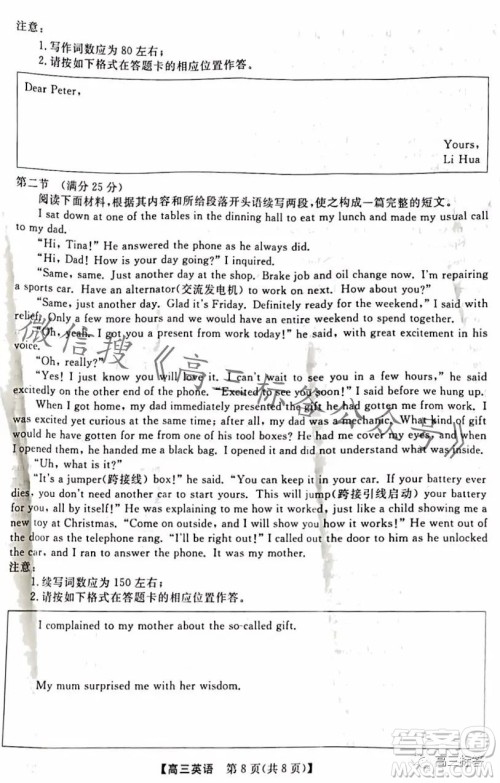 注意：
1. 写作词数应为 80 左右；
2. 请按如下格式在答题卡的相应位置作答。
Dear Peter,
Yours,
Li Hua
第二节 （满分 25 分）
阅读下面材料，根据其内容和所给段落开头语续写两段，使之构成一篇完整的短文。
I sat down at one of the tables in the dinning hall to eat my lunch and made my usual call
to my dad.
“Hi, Tina!” He answered the phone as he always did.
“Hi, Dad! How is your day going?” I inquired.
“Same, same. Just another day at the shop. Brake job and oil change now. I'm repairing
a sports car. Have an alternator(交流发电机) to work on tomorrow. How about you?”
“Same, just another day. Glad it's Friday. Definitely ready for the weekend,” I said with
relief. Only a few more hours and we would have another exciting weekend.
“Oh, yeah. I got you a present from work today!” he said, with great excitement in his
voice.
“Oh, really?”
“Yes! I just know you will love it. I can't wait to see you in a few hours,” he said
excitedly on the other end of the phone. “Excited to see you soon!” I said before we hung up.
When I got home, my dad immediately presented the gift he had gotten me from work. I
was excited yet curious at the same time, because my dad was a mechanic. What kind of gift
would it be? Maybe one of his own tool boxes? He had me cover my eyes, and when
I opened them, he handed me a black bag. I opened it and did not understand what was inside.
“Uh, what is it?”
“It's a jumper(跨接线) box!” he said. “You can keep it in your car. If your battery ever
dies, you don't need another car to start it. This will jump(跨接引线启动) your battery
for you, all by itself!” He was explaining to me how it worked. He was excited like I was seeing a
new toy at Christmas. “Come on outside, I will show you how to use it!” He went out of
the door as the telephone rang. “I'll be right out!” I called out the door to him as he unlocked
the car and started to demonstrate.
注意：
1. 续写词数应为 150 左右；
2. 请按如下格式在答题卡的相应位置作答。
I complained to my mother about the so-called gift.
My mum surprised me with her wisdom.
【高三英语　第 8 页(共 8 页)】
微信搜《高三标答公众号》
答案圈
高三标答